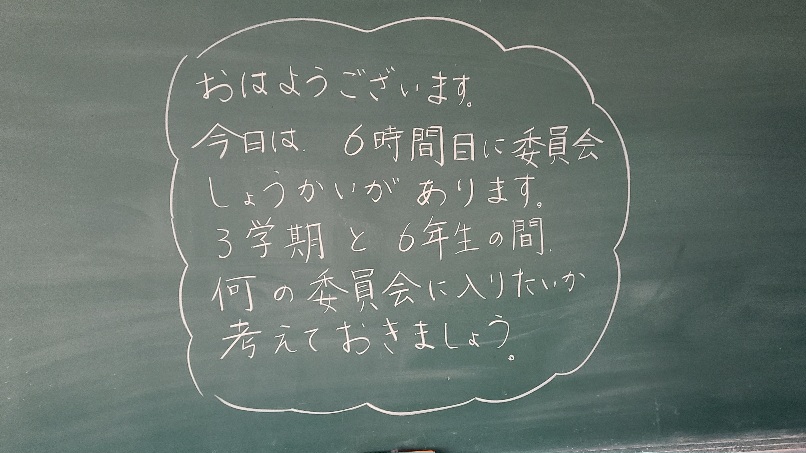 おはようございます。
今日は、6時間目に委員会
しょうかいがあります。
3学期と6年生の間、
何の委員会に入りたいか
考えておきましょう。